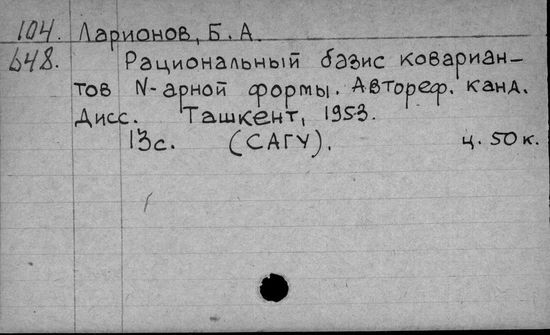 104. Ларионов, Б. А.
648. Рациональный базис ковариан-
тов N-арной формы. Автореф. канд.
Дисс. Ташкент, 1953.
13с. (САГУ). ц. 50 к.